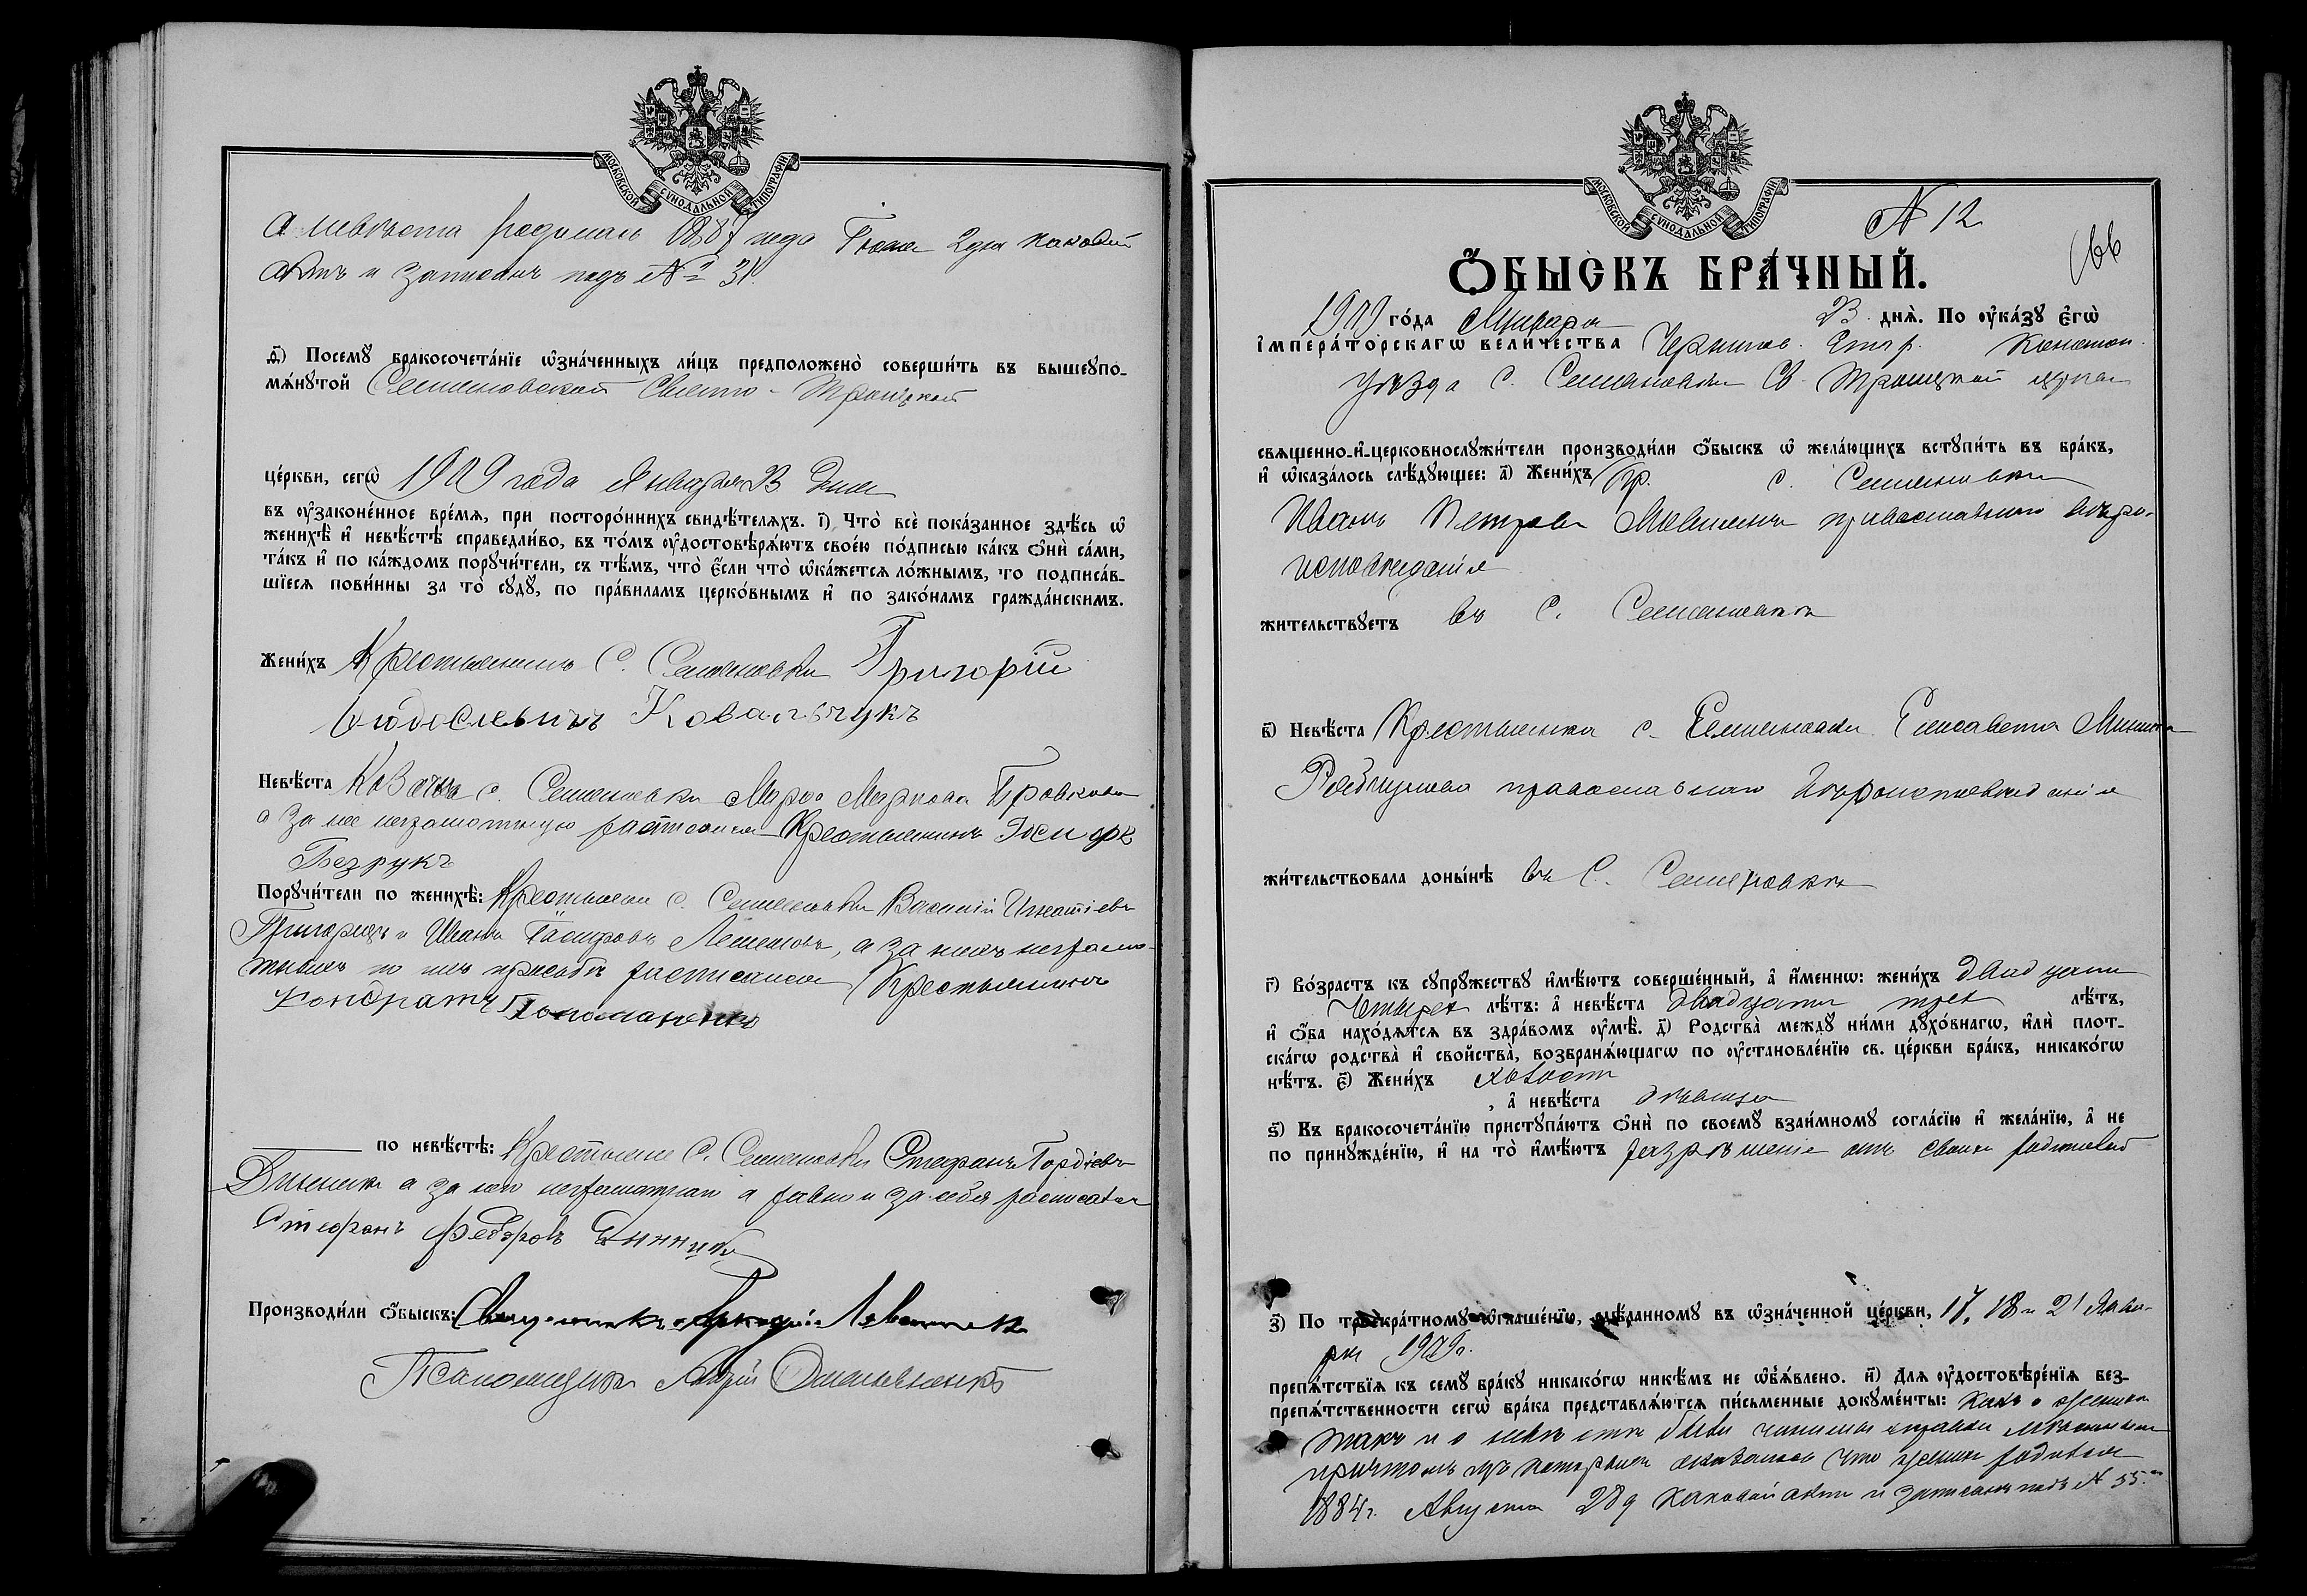 МОСКОВСКОЙ СУНОДАЛЬНОЙ ТИПОГРАФІИ
а невѣста родилась 1887 года Іюля 2 дня каковой
актъ и записанъ подъ № 31.
д҃) Посемꙋ бракосочета́нїе ѡ҆зна́ченныхъ ли́цъ предположено̀ соверши́ть въ вышеꙋпо-
мѧ́нꙋтой Семеновской Свято-Троицкой
це́ркви, сегѡ̀ 1909 года Января 23 дня
въ ᲂу҆зако́ненное вре́мѧ, при посторо́ннихъ свидѣ́телѧхъ. і҃) Что̀ всѐ пока́занное здѣ́сь ѡ҆
женихѣ̀ и҆ невѣ́стѣ справедли́во, въ то́мъ ᲂу҆достовѣрѧ́ютъ своею по́дписью ка́къ ѻ҆нѝ са́ми,
та́къ и҆ по ка́ждомъ порꙋчи́тели, съ тѣ́мъ, что̀ є҆́сли что̀ ѡ҆ка́жетсѧ ло́жнымъ, то подписа́в-
шїесѧ пови́нны за то̀ сꙋдꙋ̀, по пра́виламъ церко́внымъ и҆ по зако́намъ гражда́нскимъ.
Жени́хъ Крестьянинъ с. Семеновки Григорій
Ковальчукъ
Невѣ́ста Козачка с. Семеновки Маркова Бровкова
а за нее неграмотную росписался Крестьянинъ
Безрукъ
Порꙋчи́тели по женихѣ̀: Крестьяне с. Семеновки Василій Игнатіевъ
и Иванъ а за нихъ неграмо-
тныхъ по ихъ просьбѣ росписался Крестьянинъ
Кондратъ Пономаренко
по невѣ́стѣ: Крестьяне с. Семеновки Стефанъ Гордіевъ
а за него неграмотнаго а равно и за себя росписался
Стефанъ Федоровъ
Производи́ли ѻ҆́быскъ: Священникъ Аркадій
Псаломщикъ Андрій Омельяненко
МОСКОВСКОЙ СУНОДАЛЬНОЙ ТИПОГРАФІИ
№ 12
66
Ѻ҆́БЫСКЪ БРА́ЧНЫЙ.
1909 го́да Января 23 днѧ̀. По ᲂу҆ка́зꙋ є҆гѡ̀
і҆мпера́торскагѡ вели́чества Чернигов. Епар. Конотоп.
уѣзда с. Семеновки Св. Троицкой церкви
свѧщенно-и҆-церковнослꙋжи́тели производи́ли ѻ҆́быскъ ѡ҆ жела́ющихъ встꙋпи́ть въ бра́къ,
и҆ ѡ҆каза́лось слѣ́дꙋющее: а҃) Жени́хъ Кр. с. Семеновки
Иванъ Петровъ православнаго вѣро-
исповѣданія
жи́тельствꙋетъ въ с. Семеновкѣ
в҃) Невѣ́ста Крестьянка с. Семеновки Елисавета
православнаго вѣроисповѣданія
жи́тельствовала доны́нѣ въ с. Семеновкѣ
г҃) Во́зрастъ къ сꙋпрꙋ́жествꙋ и҆мѣ́ютъ соверше́нный, а҆ и҆́меннѡ: жени́хъ двадцати
четырех лѣ́тъ: а҆ невѣ́ста двадцати трех лѣ́тъ,
и҆ ѻ҆́ба нахо́дѧтсѧ въ здра́вомъ ᲂу҆мѣ̀. д҃) Родства̀ междꙋ ни́ми дꙋхо́внагѡ, и҆лѝ плот-
ска́гѡ родства̀ и҆ свойства̀, возбранѧ́ющагѡ по ᲂу҆становле́нїю св. це́ркви бра́къ, никако́гѡ
нѣ́тъ. є҃) Жени́хъ холостъ
, а҆ невѣ́ста дѣвица
ѕ҃) Къ бракосочета́нїю пристꙋпа́ютъ ѻ҆нѝ по своемꙋ̀ взаи́мномꙋ согла́сїю и҆ жела́нїю, а҆ не
по принꙋжде́нїю, и҆ на то̀ и҆мѣ́ютъ разрѣшеніе отъ своихъ родителей
з҃) По троекра́тномꙋ ѡ҆глаше́нїю, сдѣ́ланномꙋ въ ѡ҆зна́ченной це́ркви, 17, 18 и 21 Янва-
ря 1909 г.
препѧ́тствїѧ къ семꙋ̀ бра́кꙋ никако́гѡ никѣ́мъ не ѡ҆б̾ѧ́влено. и҃) Длѧ ᲂу҆достовѣре́нїѧ без-
препѧ́тственности сегѡ̀ бра́ка представлѧ́ютсѧ пи́сьменные докꙋме́нты: Какъ о женихѣ
такъ и о невѣстѣ были чинимы справки мѣстнымъ
причтомъ изъ которыхъ оказалось что женихъ родился
1884 г. Августа 28 д каковой актъ и записанъ подъ № 55.